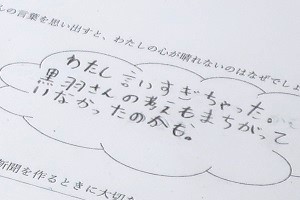 の言葉を思い出すと、わたしの心が晴れないのはなぜでしょ
わたし言いすぎちゃった。
黒羽さんの考えもまちがって
いなかったのかも。
新聞を作るときに大切な